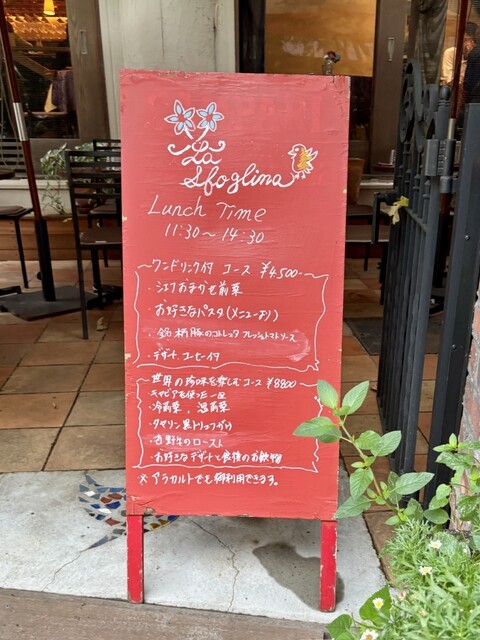 La
Sfoglina
Lunch Time
11:30～14:30
ワンドリンク付 コース ¥4,500-
・シェフおまかせ前菜
・お好きなパスタ(メニューより)
・銘柄豚のコトレッタ フレッシュトマトソース
・デザート、コーヒー付
世界の珍味を楽しむコース ¥8800
・キャビアを使った一皿
・冷前菜、温前菜
・タヤリン黒トリュフがけ
・吉野牛のロースト
・お好きなデザートと食後のお飲物
※アラカルトでも御利用できます。